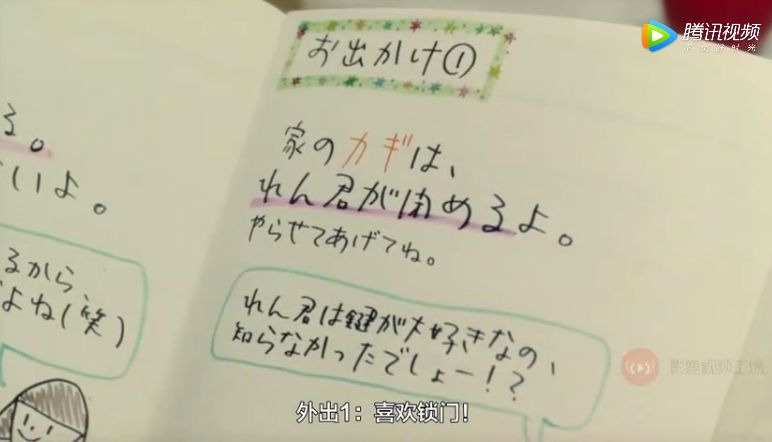 る。
いよ。
るから
よね(笑)
お出かけ①
家のカギは、
れん君が閉めるよ。
やらせてあげてね。
れん君は鍵が大好きなの、
知らなかったでしょー!?
腾讯视频
不负好时光
影鹿视频工场
外出1：喜欢锁门!